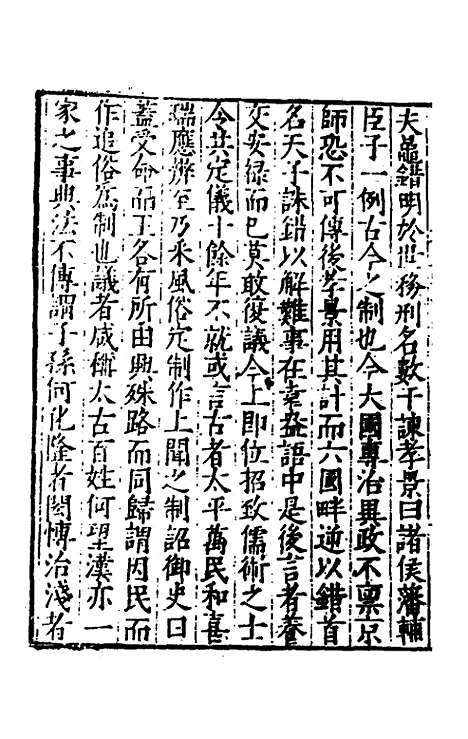 夫鼂錯明於世務刑名數干諫孝景曰諸侯藩輔
臣子一例古今之制也今大國專治異政不稟京
師恐不可傳後孝景用其計而六國畔逆以錯首
名天子誅錯以解難事在袁盎語中是後官者養
交安祿而已莫敢復議今上即位招致儒術之士
令共定儀十餘年不就或言古者太平萬民和喜
瑞應辨至乃采風俗定制作上聞之制詔御史曰
蓋受命而王各有所由興殊路而同歸謂因民而
作追俗爲制也議者咸稱太古百姓何望漢亦一
家之事典法不傳謂子孫何化隆者閎博治淺者